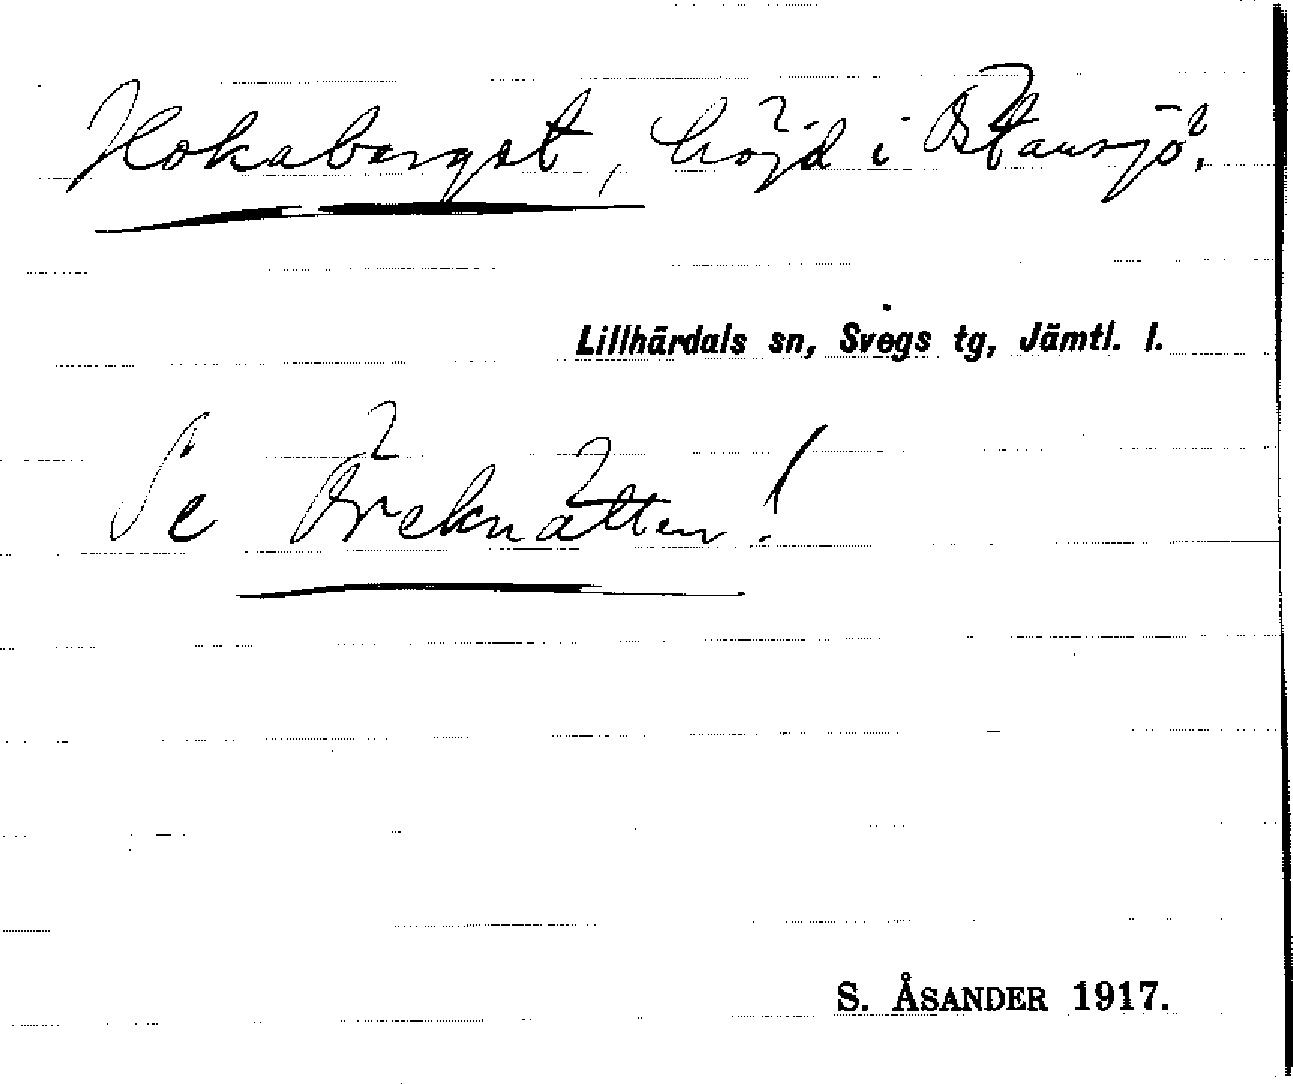 Hokaberget, höjd i Östansjö.
Lillhärdals sn, Svegs tg, Jämtl. l.
Se Öreknätten!
S. ÅSANDER 1917.